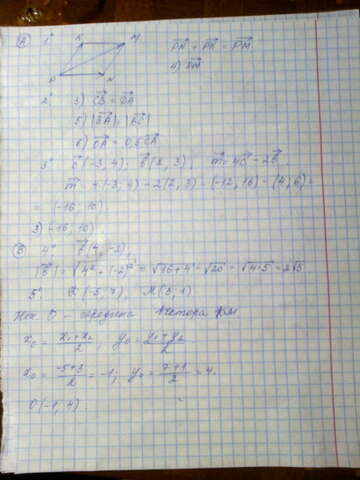 A 1° K M
PN + PK = PM
P N
4) PM
2° 3) CB = DA
5) |BA|, |AC|
6) OA = 0,5CA
3° c(-3, 4), b(2, 3), m = 4c - 2b
m = 4(-3, 4) - 2(2, 3) = (-12, 16) - (4, 6) =
= (-16, 10)
3) -16, 10)
B 4° (4, -2),
= √4² + (-2)² = √16+4 = √20 = √4·5 = 2√5
5° K(-5, 7), M(3, 1)
O - середина вектора КМ
x₀ = x₁+x₂/2, y₀ = y₁+y₂/2
x₀ = -5+3/2 = -1; y₀ = 7+1/2 = 4.
O(-1, 4).